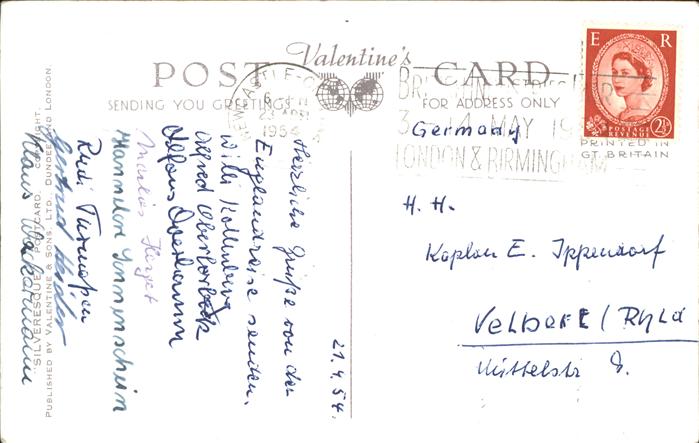 Valentine's
POST CARD
SENDING YOU GREETINGS
FOR ADDRESS ONLY
E R
POSTAGE REVENUE
2½D
PRINTED IN
GT. BRITAIN
NEWCASTLE
23 APR
1954
BRITISH INDUSTRIES
3 - 14 MAY 19
LONDON & BIRMINGHAM
Germany
H. H.
Kaplan E. Ippendorf
VELBERT / Rhld
Mittelstr 8.
21.4.54.
Herzliche Grüße von der
Englandreise senden.
Willi Kollenberg
Alfred Oberlorbeck
Alfons Overhamm
Marlies Herget
Hannelore Sonnenschein
Rudi
Gertrud Heider
Klaus Wackermann
"SILVERESQUE" POSTCARD. COPYRIGHT.
PUBLISHED BY VALENTINE & SONS, LTD. DUNDEE AND LONDON